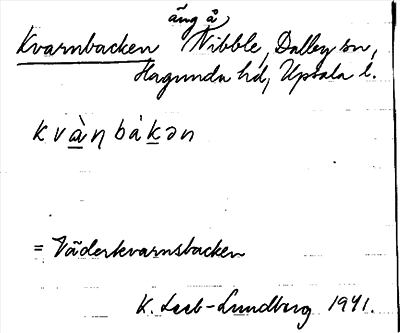 äng å
Kvarnbacken Nibble, Dalby sn,
Hagunda hd, Upsala l.
kvàṇbàkən
= Väderkvarnsbacken
K. Leeb-Lundberg 1941.